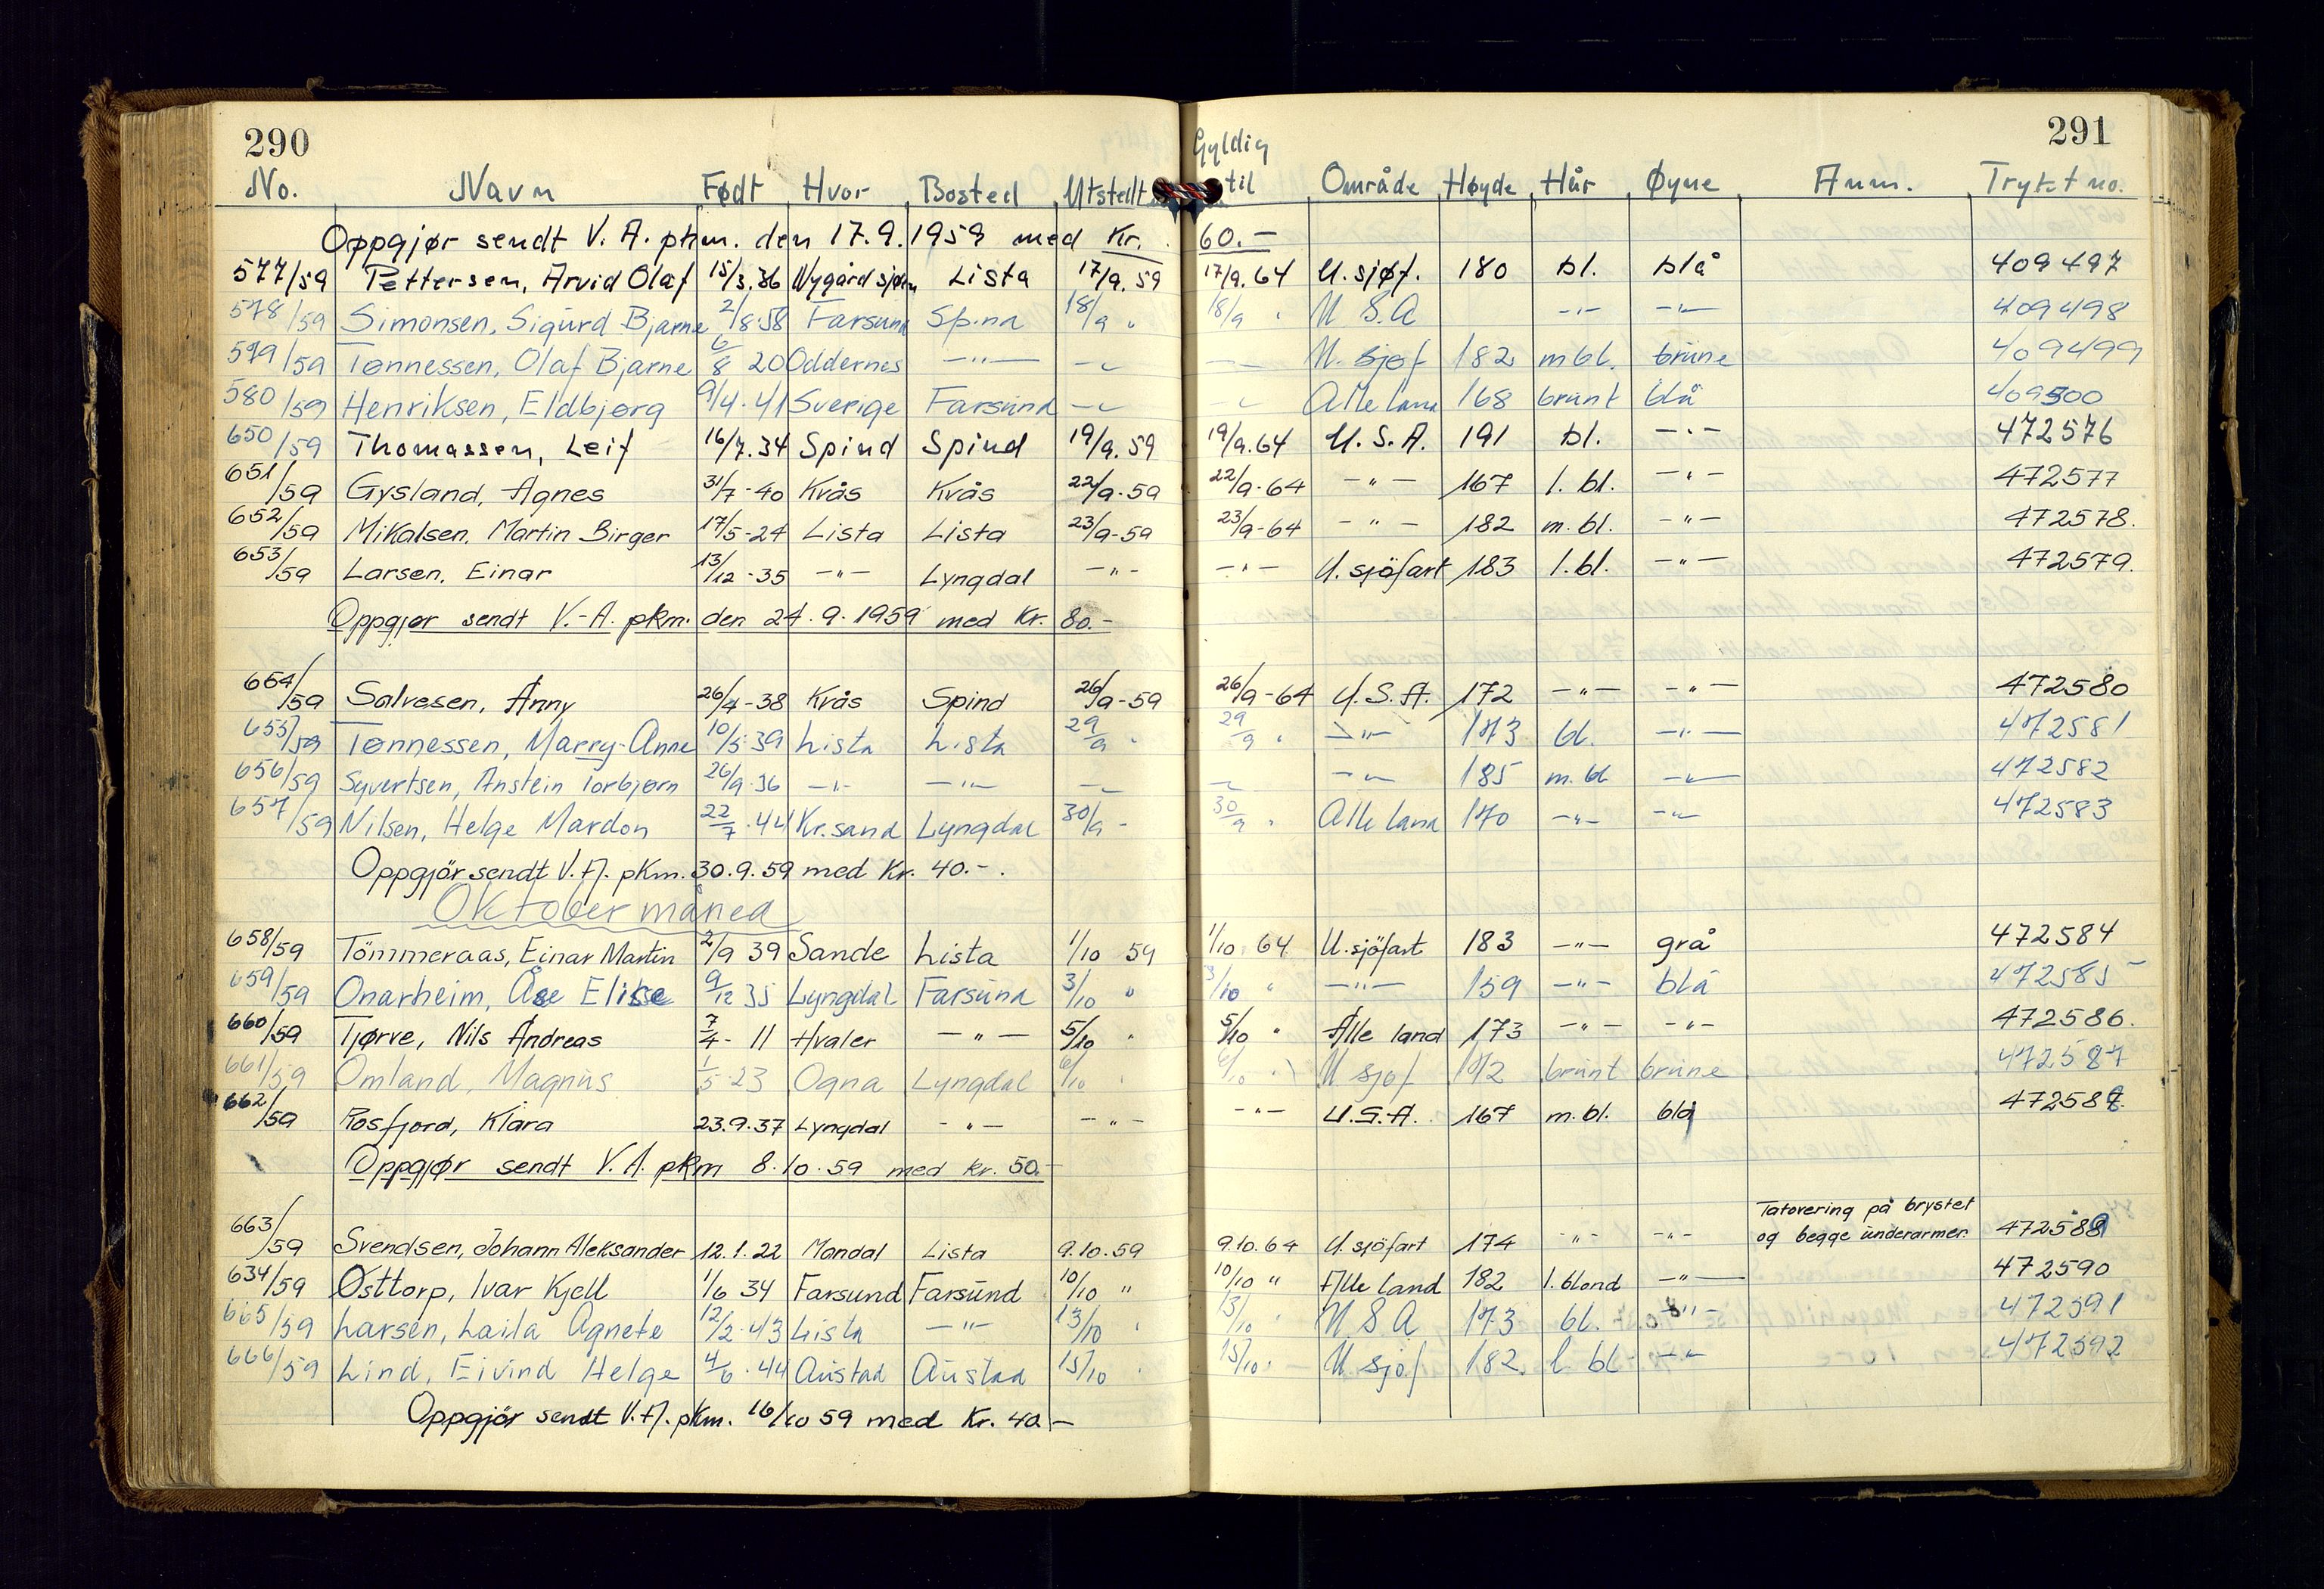 290
291
No. Navn Født Hvor Bosted Utstedt Gyldig til Område Høyde Hår Øyne Anm. Trykt no.
Oppgjør sendt V. A. pkm. den 17.9.1959 med Kr. 60.—
577/59 Pettersen, Arvid Olaf 15/3.36 Nygårdsjøen Lista 17/9.59 17/9.64 U.sjøf. 180 bl. blå 409497
578/59 Simonsen, Sigurd Bjarne 2/8.58 Farsund Spind 18/9 " 18/9 " U S.A —"— —"— 409498
579/59 Tønnessen, Olaf Bjarne 6/8 20 Oddernes —"— —"— —"— U. sjøf 182 mbl. brune 409499
580/59 Henriksen, Eldbjørg 9/4.41 Sverige Farsund —"— —"— Alle land 168 brunt blå 409500
650/59 Thomassen, Leif 16/7.34 Spind Spind 19/9.59 19/9.64 U.S.A. 191 bl. —"— 472576
651/59 Gysland, Agnes 31/7-40 Kvås Kvås 22/9-59 22/9-64 —"— 167 l. bl. —"— 472577
652/59 Mikalsen, Martin Birger 17/5-24 Lista Lista 23/9-59 23/9-64 —"— 182 m. bl. —"— 472578.
653/59 Larsen, Einar 13/12-35 —"— Lyngdal —"— —"— U.sjöfart 183 l.bl. —"— 472579.
Oppgjør sendt V.-A. pkm. den 24.9.1959 med Kr. 80.-
654/59 Salvesen, Anny 26/4-38 Kvås Spind 26/9-59 26/9-64 U.S.A. 172 —"— —"— 472580
655/59 Tønnessen, Marry-Anne 10/5 39 Lista Lista 29/9 " 29/9 " —"— 173 bl. —"— 472581
656/59 Syvertsen, Anstein Torbjørn 26/9.36 —"— —"— —"— —"— —"— 185 m. bl —"— 472582
657/59 Nilsen, Helge Mardon 22/7.44 Kr.sand Lyngdal 30/9 " 30/9 " Alle land 170 —"— —"— 472583
Oppgjör sendt V.A. pkm. 30.9.59 med Kr. 40.-.
Oktober måned
658/59 Tömmeraas, Einar Martin 2/9 39 Sande Lista 1/10 59 1/10 64 U.sjöfart 183 —"— grå 472584
659/59 Onarheim, Åse Elise 9/12 35 Lyngdal Farsund 3/10 " 3/10 " —"— 159 —"— blå 472585
660/59 Tjørve, Nils Andreas 7/4- 11 Hvaler —"— 5/10 " 5/10 " Alle land 173 —"— —"— 472586.
661/59 Omland, Magnus 1/5 23 Ogna Lyngdal 6/10 " 6/10 " U sjøf 172 brunt brune 472587
662/59 Rosfjord, Klara 23.9.37 Lyngdal —"— —"— —"— U.S.A. 167 m.bl. blå 472588.
Oppgjør sendt V.A. pkm 8.10.59 med kr. 50.-
663/59 Svendsen, Johann Aleksander 12.1.22 Mandal Lista 9.10.59 9.10.64 U.sjöfart 174 —"— —"— Tatovering på brystet og begge underarmer. 472589
634/59 Østtorp, Ivar Kjell 1/6 34 Farsund Farsund 10/10 " 10/10 " Alle land 182 l.blond —"— 472590
665/59 Larsen, Laila Agnete 12/2.43 Lista —"— 13/10 " 13/10 " U S A 173 bl. —"— 472591
666/59 Lind, Eivind Helge 4/6.44 Austad Austad 15/10 " 15/10 " U sjøf 182. l. bl. —"— 472592
Oppgjör sendt V.A. pkm. 16/10 59 med Kr. 40.—